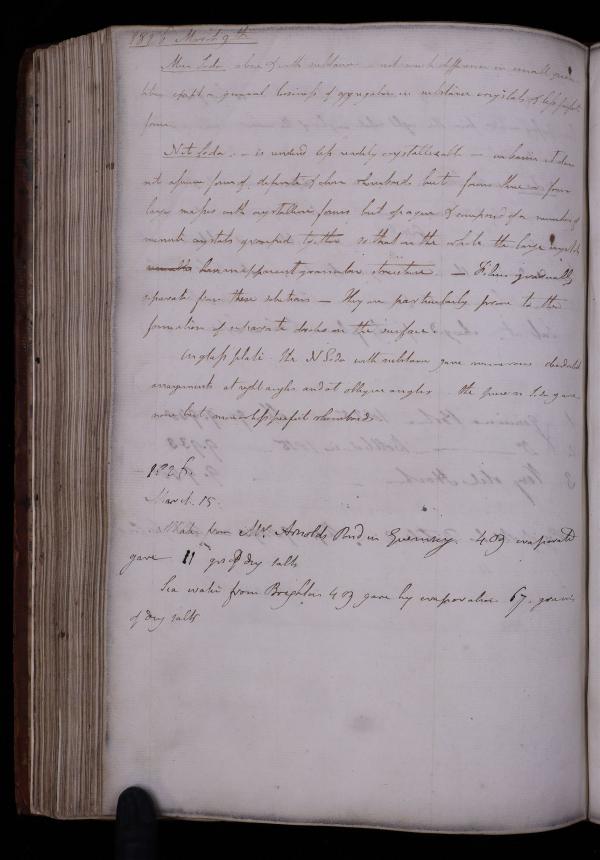 1826 March 9th
Mur Soda alone & with substance not much difference in small quan
tities except a general looseness of aggregation in substance crystals & less perfect
form
Nit Soda. is rendered less readily crystallizable in basin at does
not assume form of separate & clear rhomboids but forms
large masses with crystalline forms but opaque & composed of a number of
minute crystals grouped together so that on the whole the large crystals
have an apparent granular structure. Films gradually
separate from these solutions they are particularly prone to the
formation of separate on the surface.
On glass plate the N Soda with substance gave numerous
arrangements at right angles and at oblique angles the pure N Soda gave
none but more or less perfect rhomboids
1826.
March. 15.
Water from Mr. Arnolds Pond in Guernsey. 4 oz evaporated
gave 11 grs of dry salts
Sea water from Brighton 4 oz gave by evaporation 67. grains
of dry salts